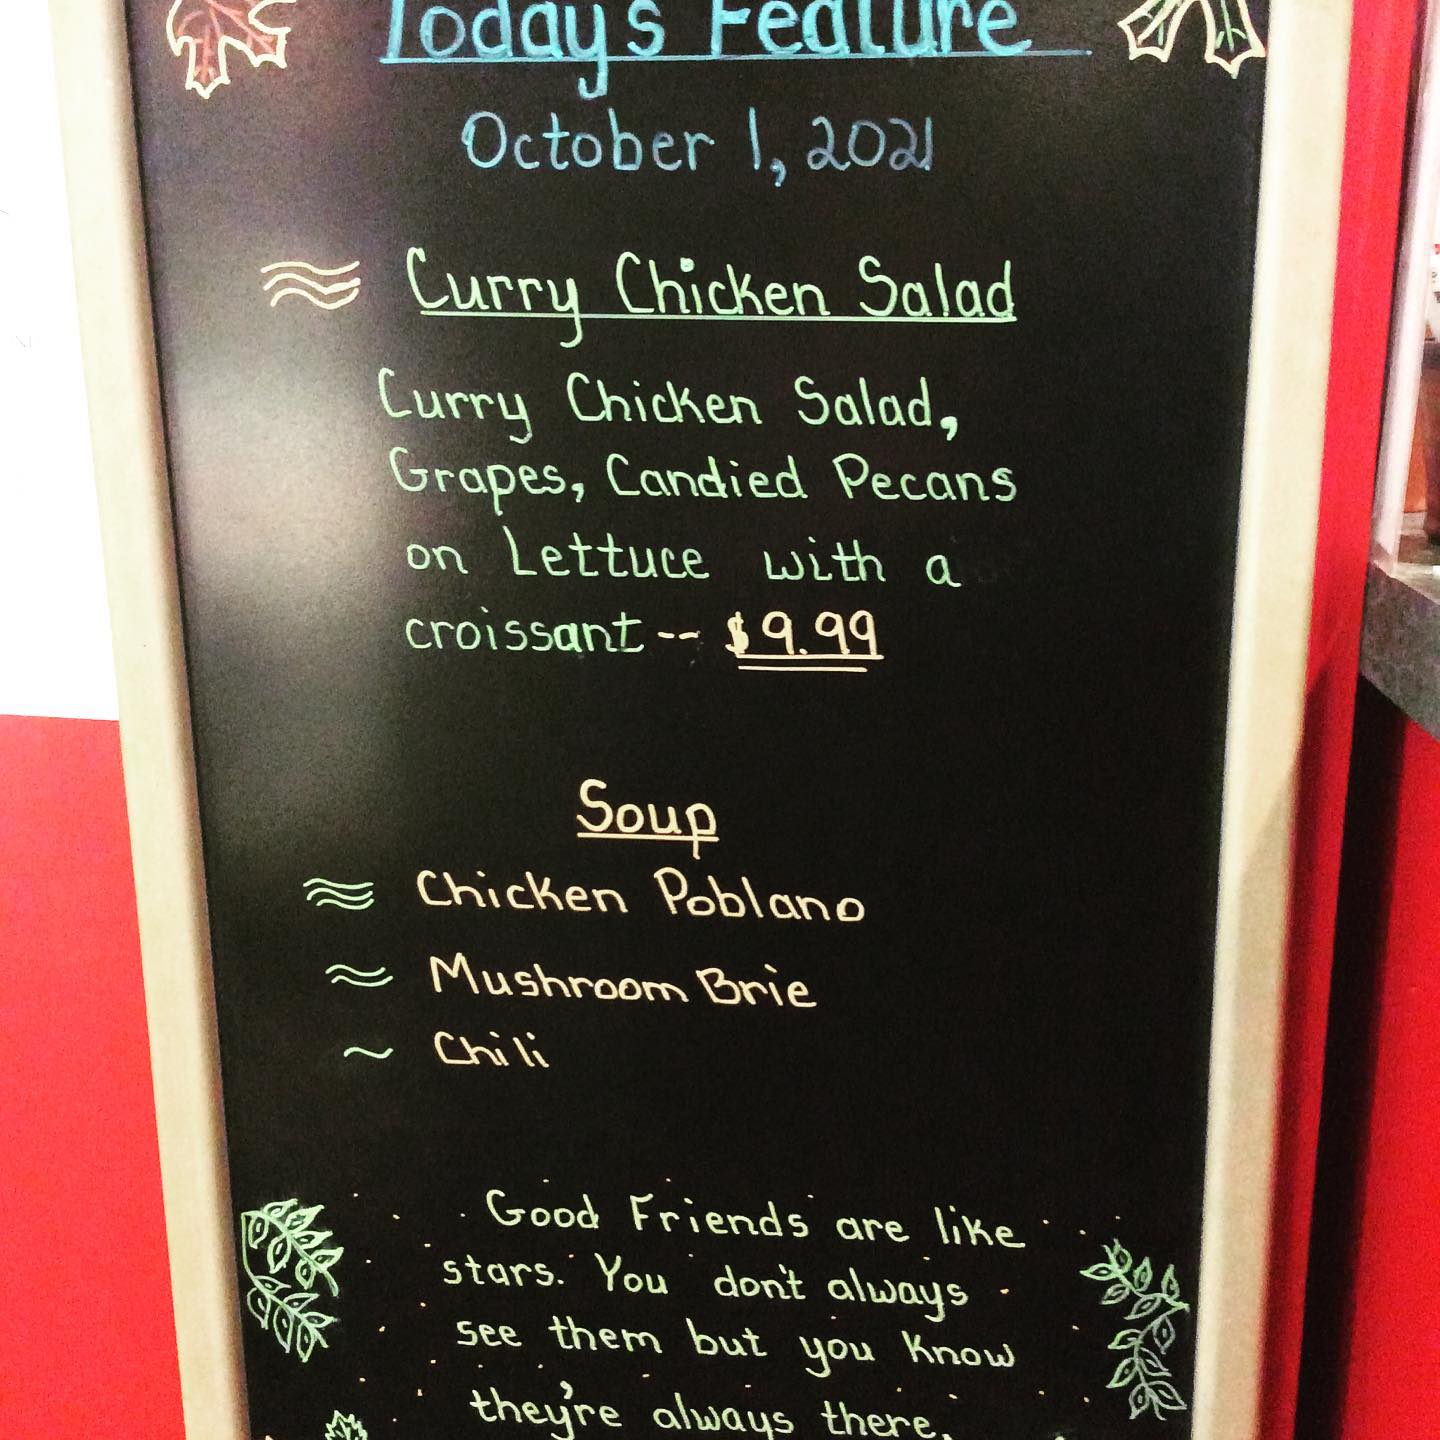 Today's Feature
October 1, 2021
Curry Chicken Salad
Curry Chicken Salad,
Grapes, Candied Pecans
on Lettuce with a
croissant -- $9.99
Soup
Chicken Poblano
Mushroom Brie
Chili
Good Friends are like
stars. You don't always
see them but you know
they're always there.